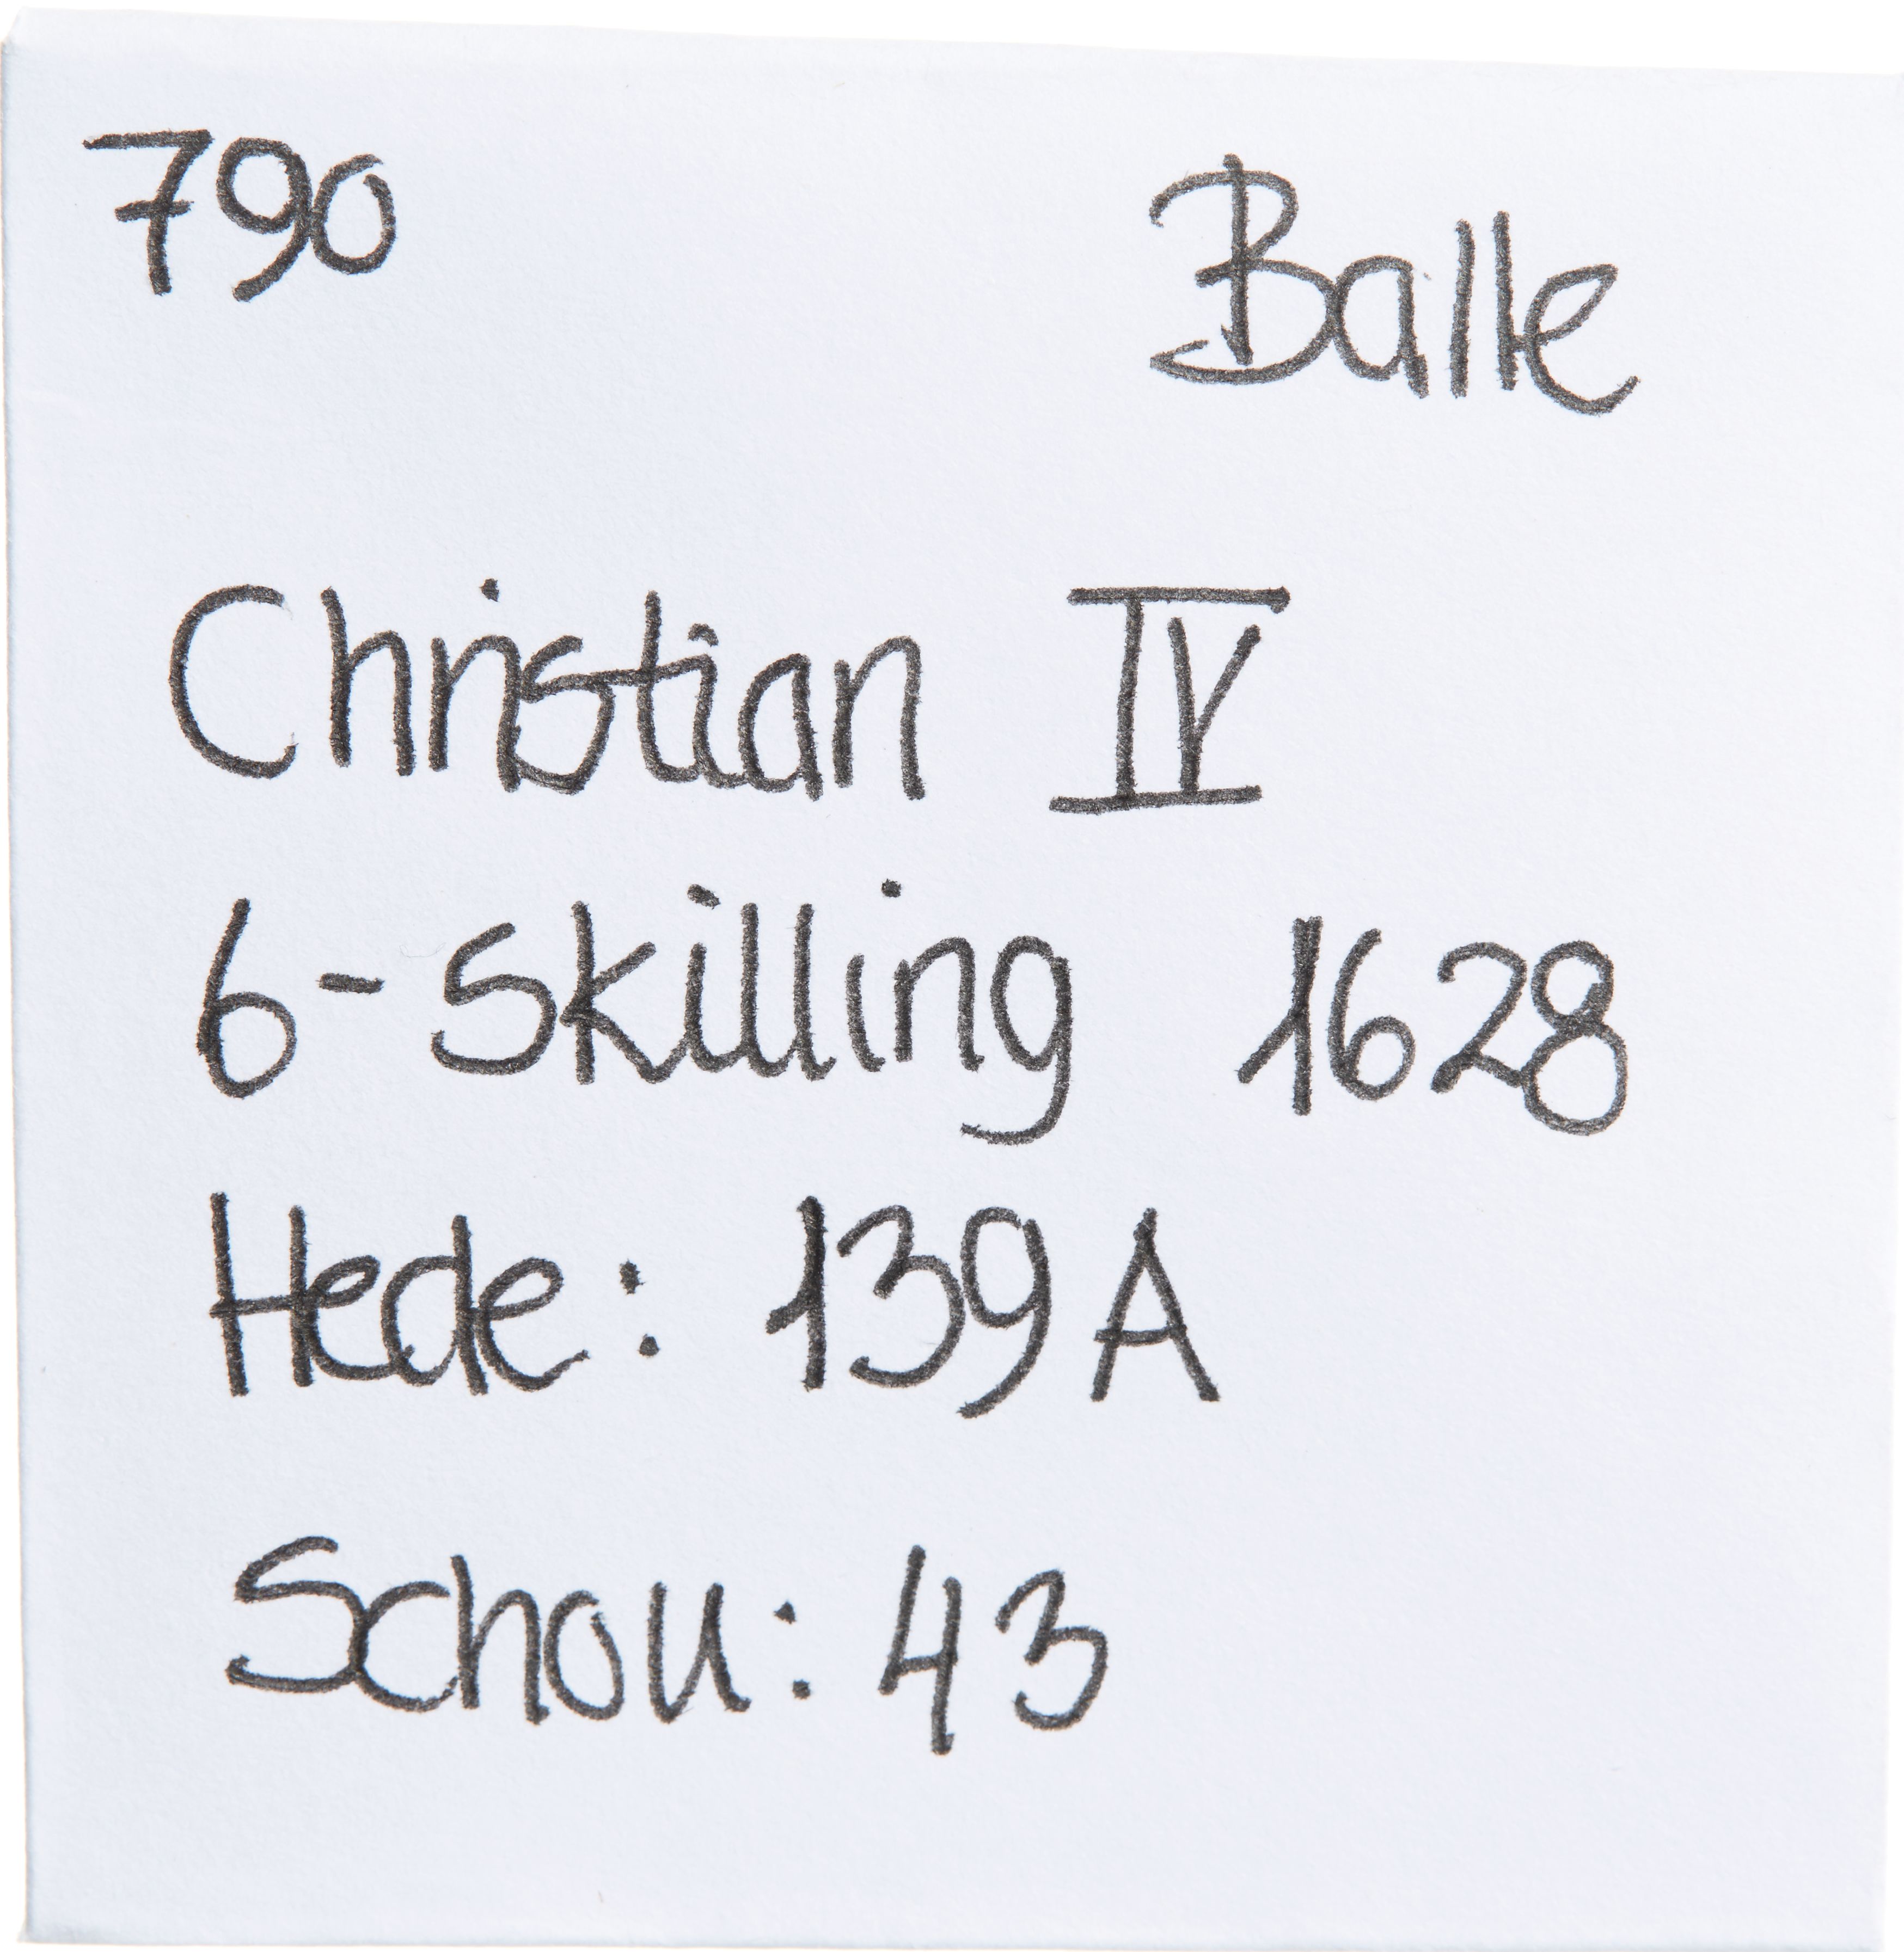 790 Balle
Christian IV
6-Skilling 1628
Hede: 139A
Schou: 43